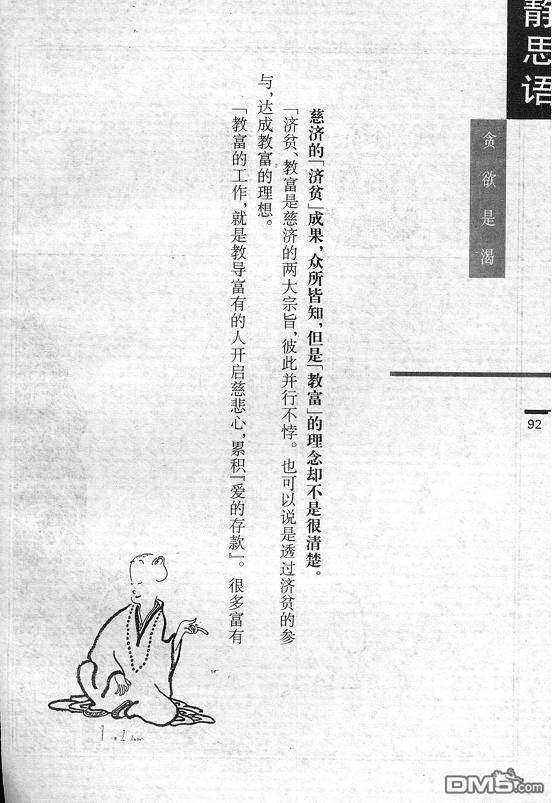 静思语
贪欲是渴
92
慈济的「济贫」成果，众所皆知，但是「教富」的理念却不是很清楚。
「济贫、教富是慈济的两大宗旨，彼此并行不悖。也可以说是透过济贫的参
与，达成教富的理想。
「教富的工作，就是教导富有的人开启慈悲心，累积『爱的存款』。很多富有
DM5.com